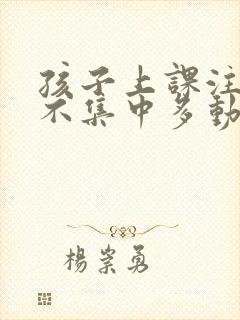 孩子上課注
不集中多動
楊崇勇